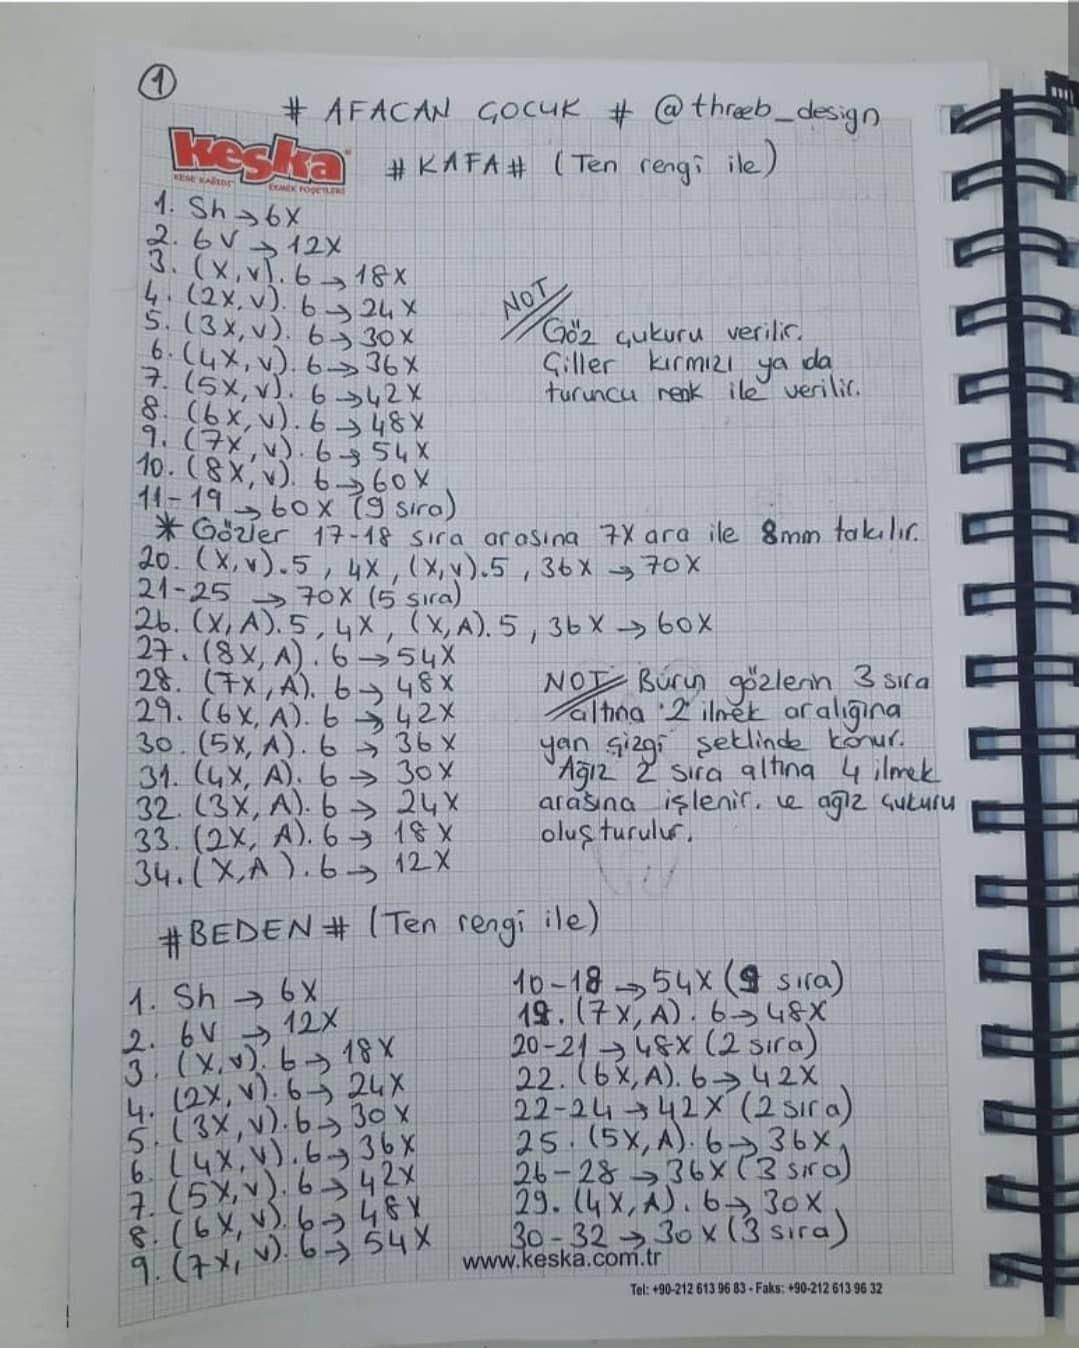 1
# AFACAN ÇOCUK # @threeb_design
keska
EKMEK POŞETLERİ
#KAFA# (Ten rengi ile)
1. Sh → 6X
2. 6V → 12X
3. (X,V).6 → 18X
4. (2X,V).6 → 24X
5. (3X,V).6 → 30X
6. (4X,V).6 → 36X
7. (5X,V).6 → 42X
8. (6X,V).6 → 48X
9. (7X,V).6 → 54X
10. (8X,V).6 → 60X
11-19 → 60X (9 sıra)
NOT
Göz çukuru verilir.
Çiller kırmızı ya da
turuncu renk ile verilir.
* Gözler 17-18 sıra arasına 7X ara ile 8mm takılır.
20. (X,V).5, 4X, (X,V).5, 36X → 70X
21-25 → 70X (5 sıra)
26. (X,A).5, 4X, (X,A).5, 36X → 60X
27. (8X,A).6 → 54X
28. (7X,A).6 → 48X
29. (6X,A).6 → 42X
30. (5X,A).6 → 36X
31. (4X,A).6 → 30X
32. (3X,A).6 → 24X
33. (2X,A).6 → 18X
34. (X,A).6 → 12X
NOT Burun gözlerin 3 sıra
altına 2 ilmek aralığına
yan çizgi şeklinde konur.
Ağız 2 sıra altına 4 ilmek
arasına işlenir. ve ağız çukuru
oluşturulur.
#BEDEN# (Ten rengi ile)
1. Sh → 6X
2. 6V → 12X
3. (X,V).6 → 18X
4. (2X,V).6 → 24X
5. (3X,V).6 → 30X
6. (4X,V).6 → 36X
7. (5X,V).6 → 42X
8. (6X,V).6 → 48X
9. (7X,V).6 → 54X
10-18 → 54X (9 sıra)
19. (7X,A).6 → 48X
20-21 → 48X (2 sıra)
22. (6X,A).6 → 42X
22-24 → 42X (2 sıra)
25. (5X,A).6 → 36X
26-28 → 36X (3 sıra)
29. (4X,A).6 → 30X
30-32 → 30X (3 sıra)
www.keska.com.tr
Tel: +90-212 613 96 83 - Faks: +90-212 613 96 32